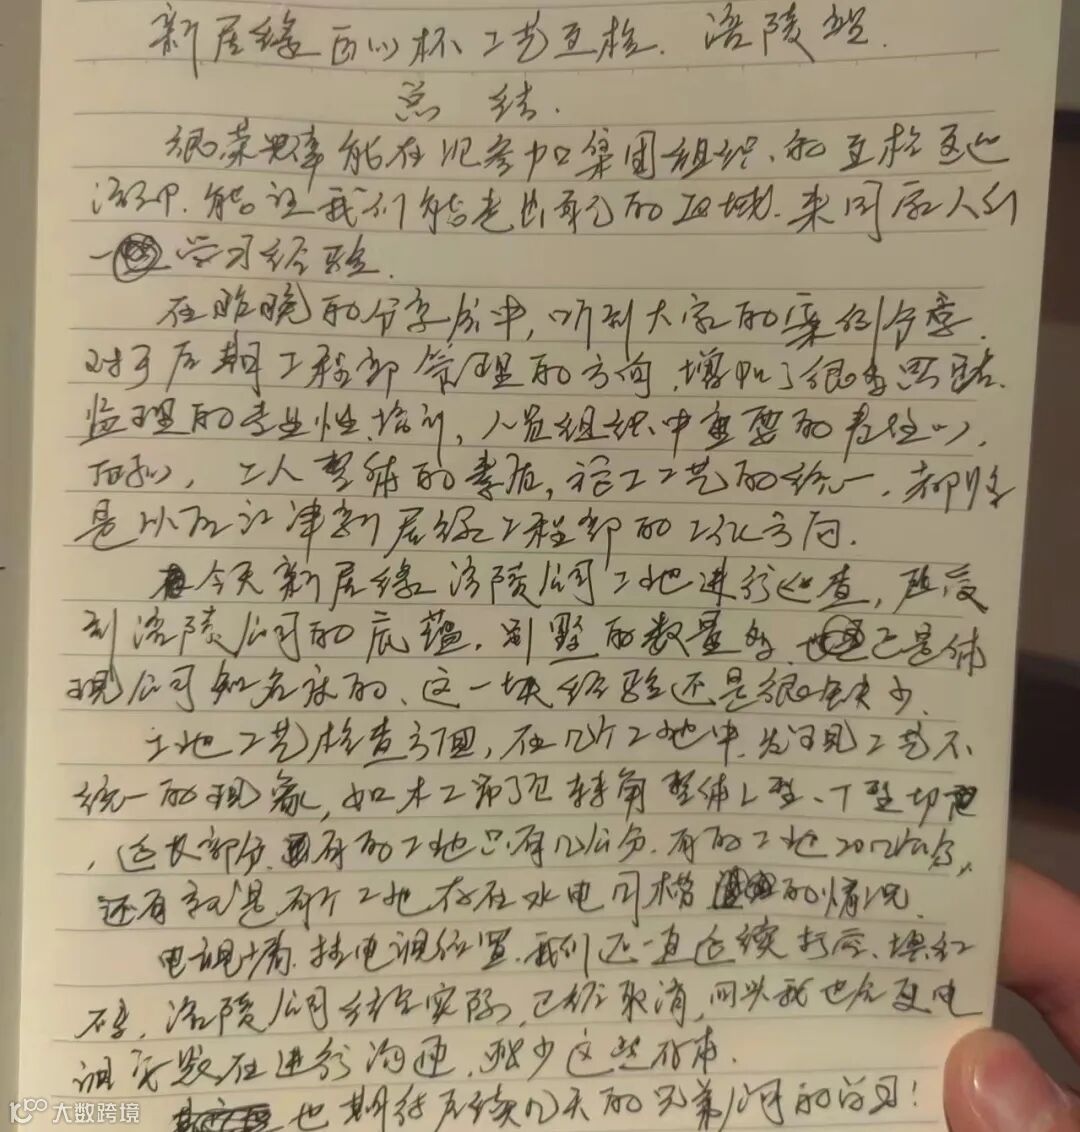 新居缘百以杯工艺互检.涪陵站.
总 结.
很荣幸能在此参加集团组织、的互检互巡
活动.能让我们能走出自己的区域.来同家人们
一 学习经验.
在昨晚的分享会中,听到大家的案例分享.
对于后期工程部管理的方向,增加了很多思路.
监理的专业性培训,人员组织中重要的责任心,
,工人整体的素质,施工工艺的统一.都将
是以后江津新居缘工程部的工作方向.
今天新居缘涪陵公司工地进行巡查,感受
到涪陵公司的底蕴.别墅的数量多. 正是体
现公司知名度的、这一块经验还是很缺少.
工地工艺检查方面,在几个工地中.发现工艺不
统一的现象,如木工吊顶转角整体L型、T型切
,延长部分.有的工地只有几公分.有的工地20几公分,
还有就是有个工地存在水电同槽 的情况.
电视墙.挂电视位置.我们还一直延续打底.填红
砖,涪陵公司结合实际,已经取消,回头我也会更电
视 在进行沟通.减少这些成本.
也期待后续几天的兄弟公司的学习!
大数跨境